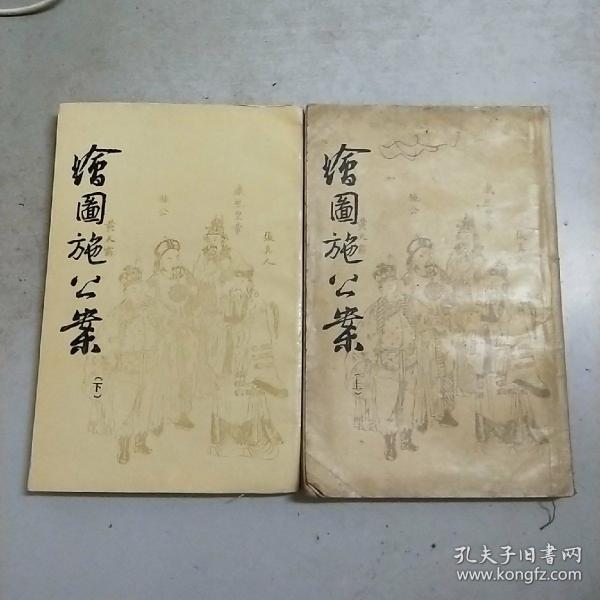 繪圖施公案
(下)
黃天霸
施公
康熙皇帝
張夫人
繪圖施公案
(上)
施公
孔夫子旧书网
www.kongfz.com